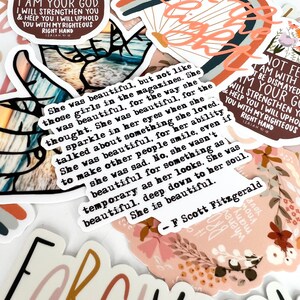 I AM YOUR GOD
I WILL STRENGTHEN YOU
& HELP YOU I WILL UPHOLD
YOU WITH MY RIGHTEOUS
RIGHT HAND
She was beautiful, but not like
those girls in the magazines. She
was beautiful, for the way she
thought. She was beautiful, for the
sparkle in her eyes when she
talked about something she loved.
She was beautiful, for her ability
to make other people smile, even if
she was sad. No, she wasn't
beautiful for something as
temporary as her looks. She was
beautiful, deep down to her soul.
She is beautiful.
- F Scott Fitzgerald
BE DISMAYED
AM YOUR GOD
STRENGTHEN YOU
& HELP YOU I WILL UPHOLD
YOU WITH MY RIGHTEOUS
RIGHT HAND